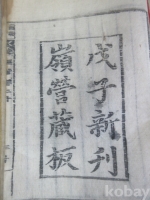 戊子新刊
嶺營藏板
kobay